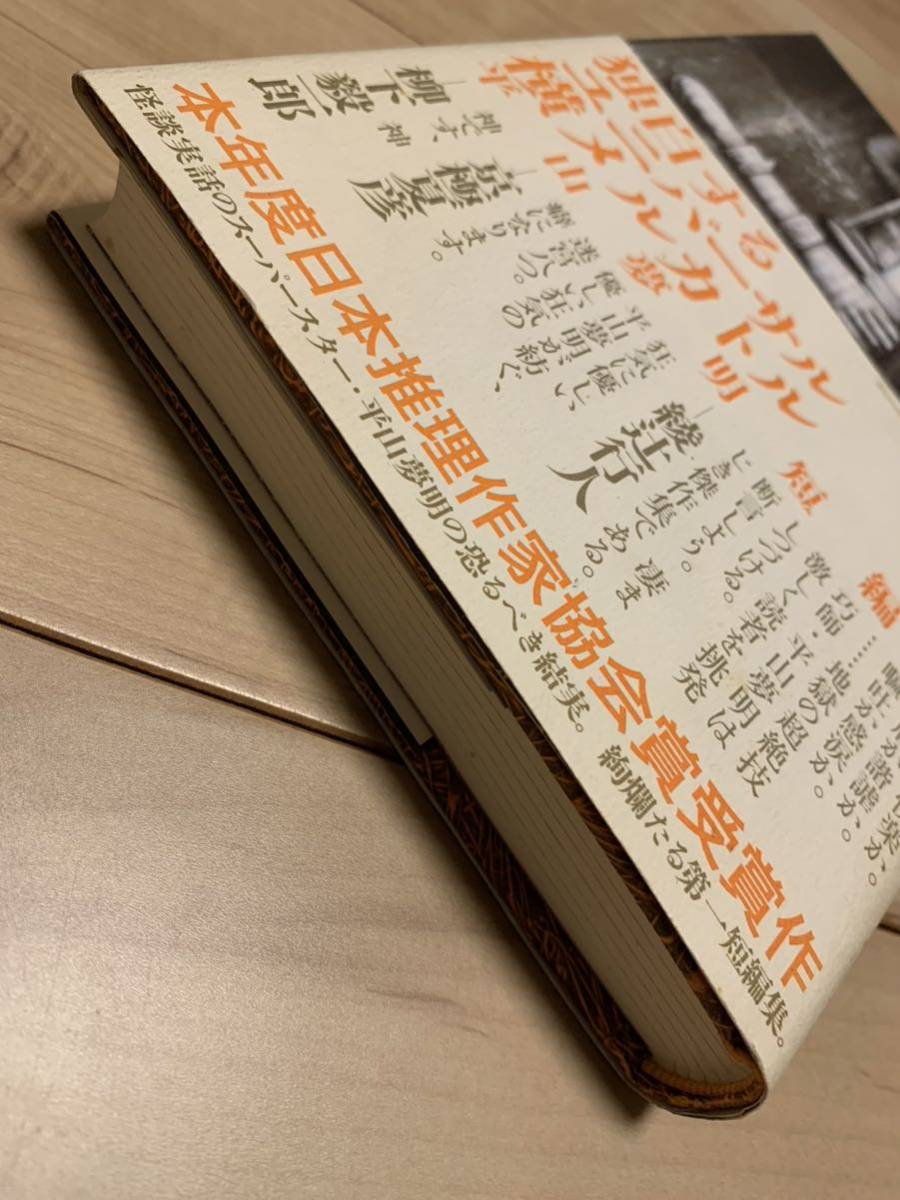 独白する
ユニバーサル
横メルカトル
平山夢明
短編
嘔吐か諧謔か。
感涙か。
……超絶技
巧師・平山夢明は
激しく読者を挑発
しつづける。
断言しよう。凄ま
じき傑作集である。
―綾辻行人
狂気に優しい、
平山夢明が紡ぐ、
優しい狂気の
迷宮へ。
癖になります。
―京極夏彦
神です、神
―柳下毅一郎
本年度日本推理作家協会賞受賞作
怪談実話のスーパースター・平山夢明の恐るべき結実。 絢爛たる第一短編集。